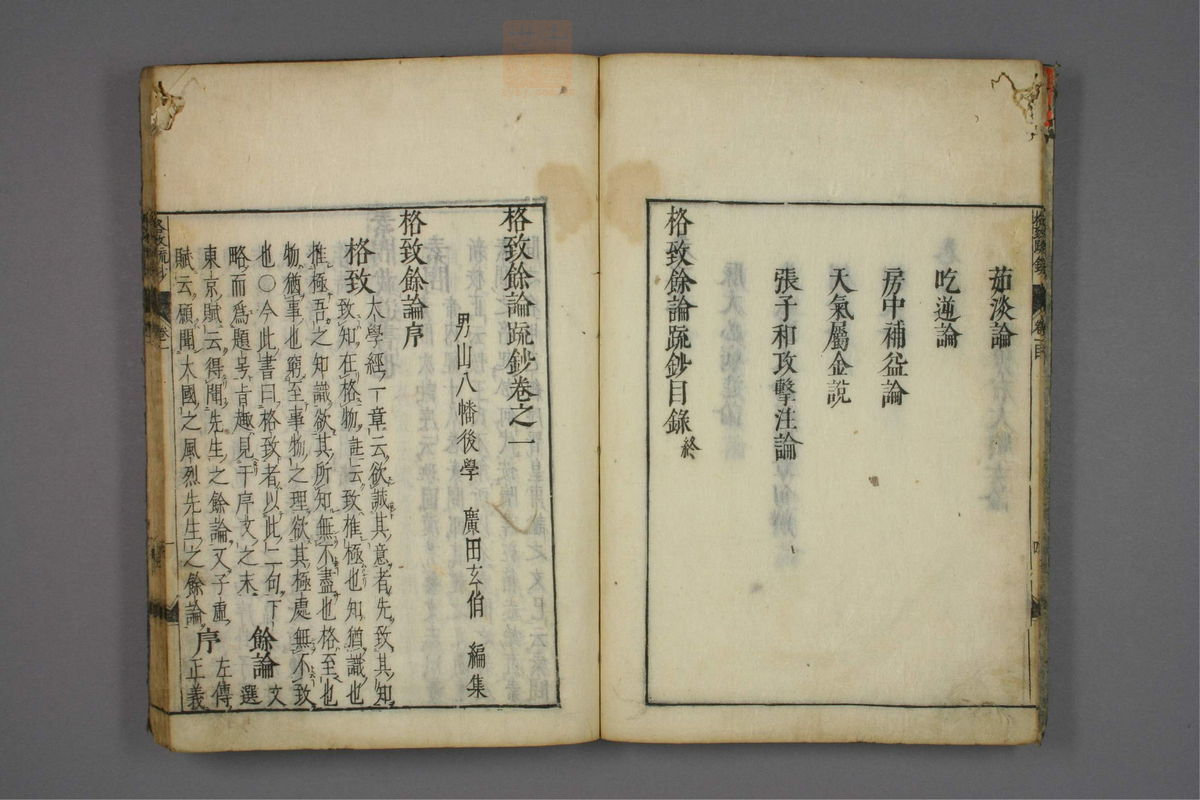 茹淡論
吃逆論
房中補益論
天氣屬金說
張子和攻擊注論
格致餘論疏鈔目錄終
格致餘論疏鈔卷之一
男山八幡後學 廣田玄伯 編集
格致餘論序
格致 大學經一章云欲誠其意者先致其知
致知在格物註云致推極也知猶識也
推極吾之知識欲其所知無不盡也格至也
物猶事也窮至事物之理欲其極處無不致
也○今此書曰格致者以此二句下 餘論 文選
略而爲題号旨趣見于序文之末
東京賦云得聞先生之餘論又子虛 序 左傳
賦云願聞大國之風烈先生之餘論 正義